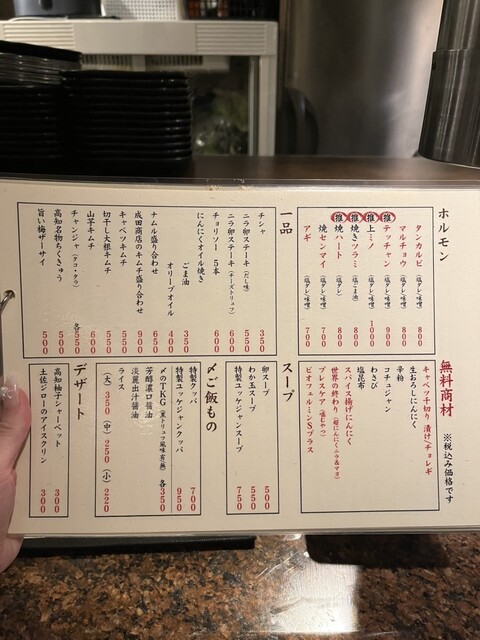 ホルモン
タンカルビ（塩ダレ・味噌） 800
マルチョウ（塩ダレ・味噌） 800
推 テッチャン（塩ダレ・味噌） 900
推 上ミノ（塩ダレ・味噌） 1000
推 焼きツラミ（塩ごま油） 800
推 焼ハート（塩ダレ） 800
焼センマイ（塩ダレ・味噌） 700
アギ（塩ダレ・味噌） 700
一品
チシャ 350
ニラ卵ステーキ（だし味） 550
ニラ卵ステーキ（チーズトリュフ） 600
チョリソー 5本 600
にんにくオイル焼き
ごま油 350
オリーブオイル 400
ナムル盛り合わせ 650
成田商店のキムチ盛り合わせ 900
キャベツキムチ 550
切干し大根キムチ 550
山芋キムチ 600
チャンジャ（タコ・タラ） 各550
高知名物ちくきゅう 500
旨い梅ザーサイ 500
無料商材
※税込み価格です
キャベツ千切り 漬け/チョレギ
生おろしにんにく
辛粉
コチュジャン
わさび
塩昆布
スパイス揚げにんにく
世界の終わり（超にんにくニラ&マヨ）
ブレスケア
ビオフェルミンSプラス
スープ
卵スープ 500
わか玉スープ 550
特製ユッケジャンスープ 750
〆ご飯もの
特製クッパ 700
特製ユッケジャンクッパ 950
〆のTKG（黒トリュフ風味有無） 各350
芳醇濃口醤油
淡麗出汁醤油
ライス
（大）350（中）250（小）220
デザート
高知柚子シャーベット 300
土佐ジローのアイスクリン 300